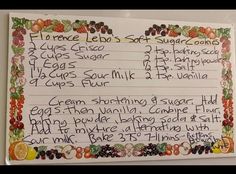 Florence Lebo's Soft Sugar Cookies
2 Cups Crisco 2 tsp. baking soda
2 Cups Sugar 2 tsp. baking powder
4 Eggs 1/2 tsp. Salt
1 1/2 Cups Sour Milk 2 tsp Vanilla
9 Cups Flour
Cream shortening & sugar. Add
eggs. then Vanilla. Combine Flour,
baking powder, baking soda & Salt.
Add to mixture alternating with
sour milk. Bake 375°